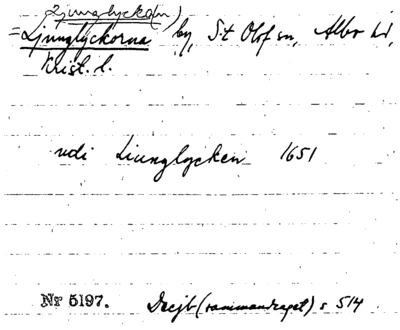 Ljunglyck(an)
= Ljunglyckorna by, S:t Olof sn, Albo hd,
Krist. l.
udi Liunglycken 1651
Nr 5197. Decjb (sammandraget) s 514.